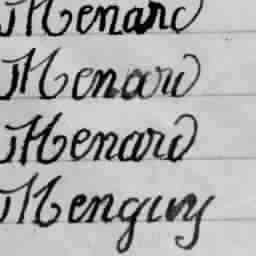 Menard
Menard
Menard
Menguy